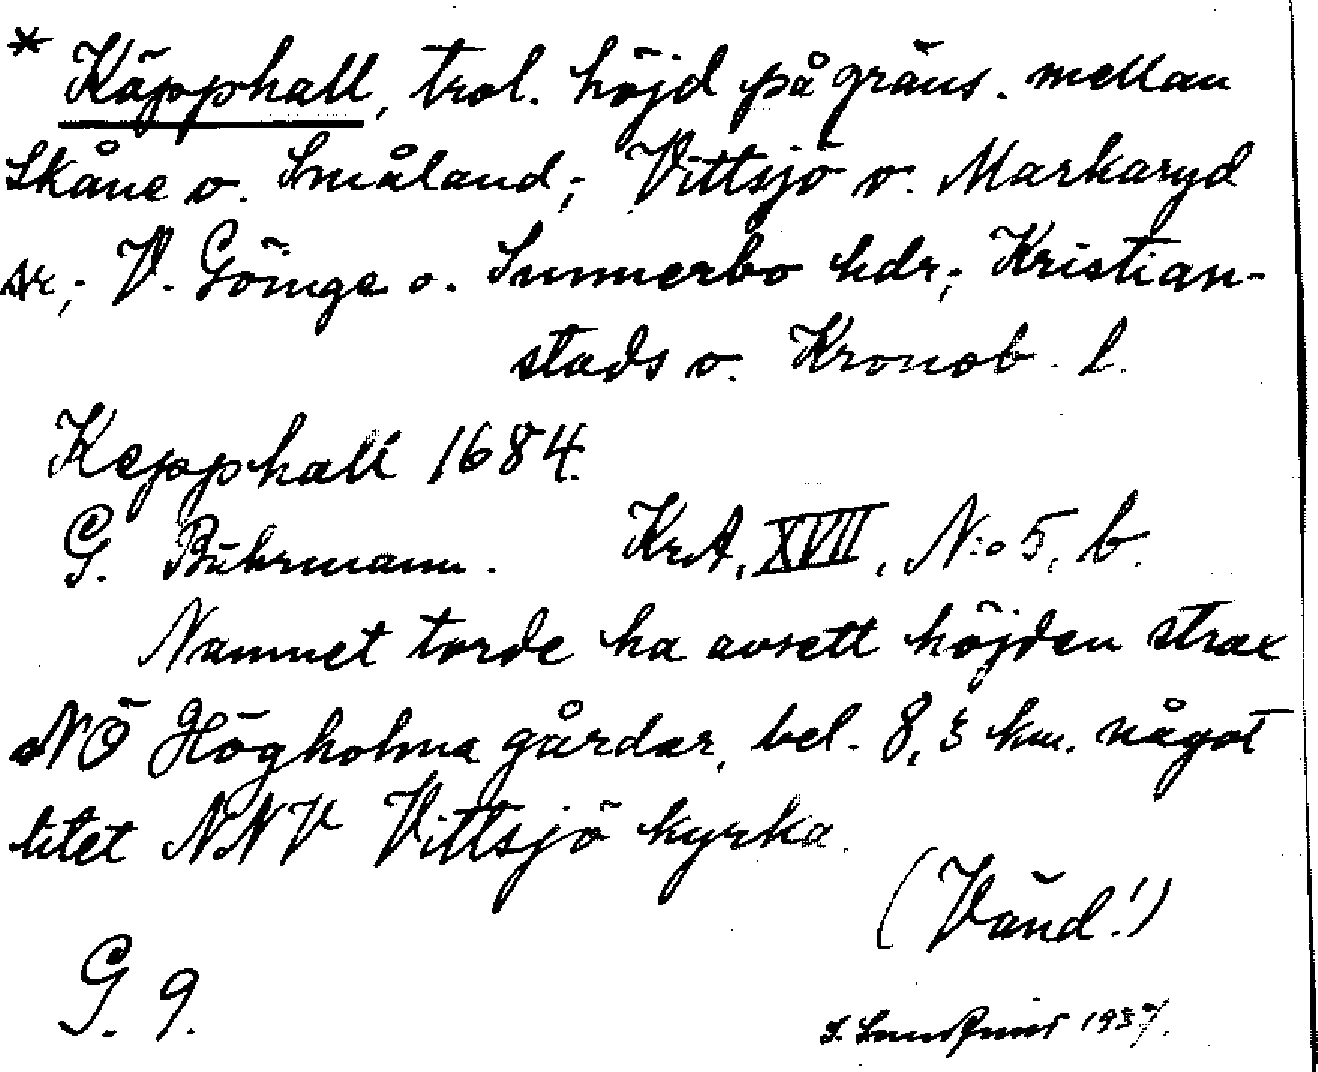 * Käpphall, trol. höjd på gräns. mellan
Skåne o. Småland; Vittsjö o. Markaryd
sr; V. Göinge o. Sunnerbo hdr; Kristian-
stads o. Kronob. l.
Kepphall 1684.
G. Buhrmann. KrA, XVII, N:o 5, b.
Namnet torde ha avsett höjden strax
NÖ Högholma gårdar, bel. 8,3 km. något
litet NNV Vittsjö kyrka.
(Vänd!)
G. 9.
1937.